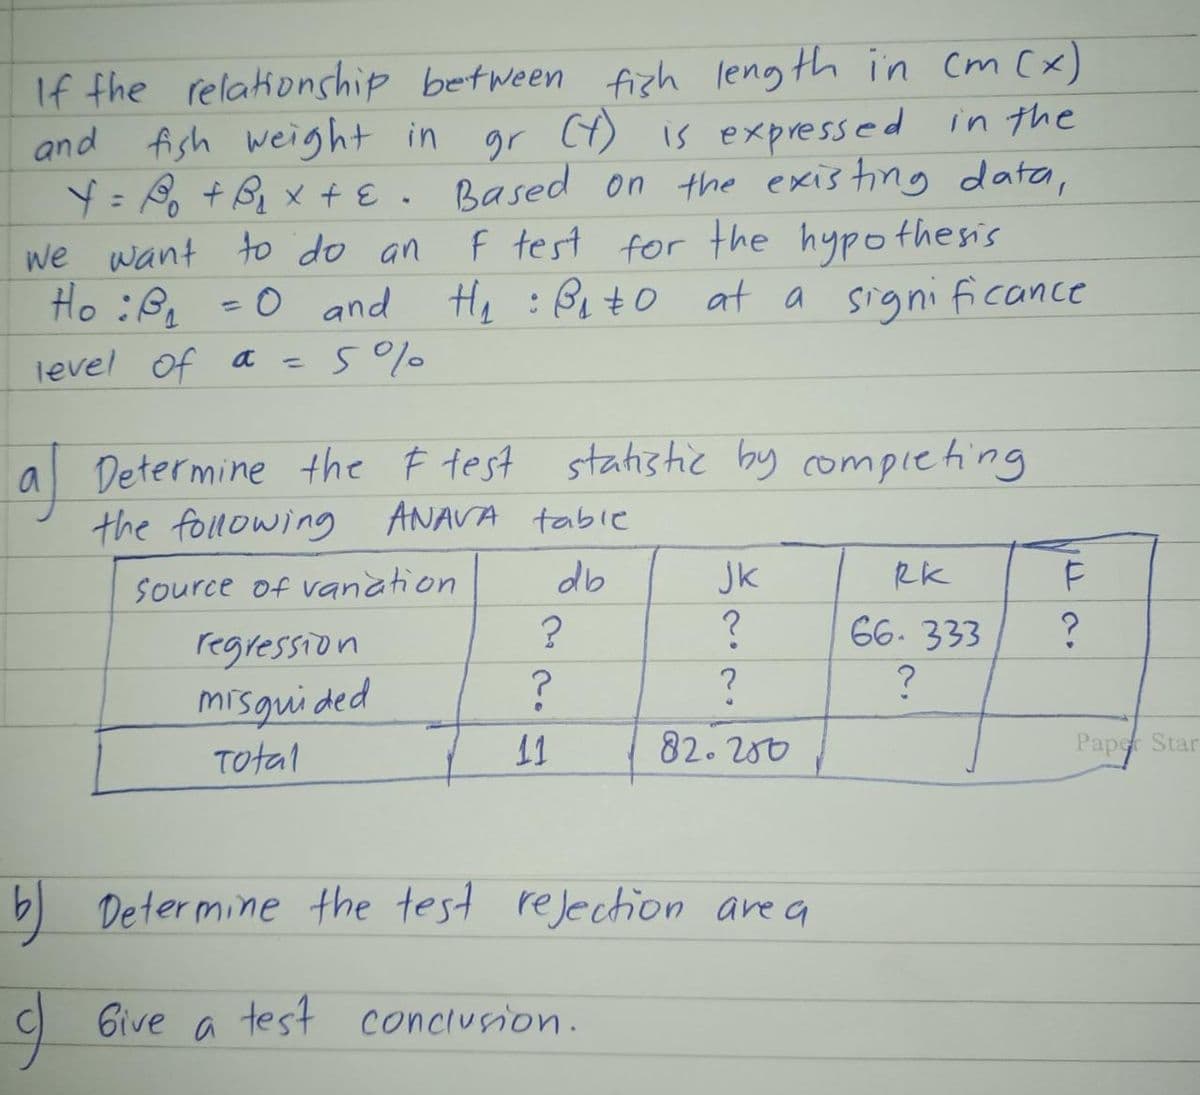 If the relationship between fish length in cm (x)
and fish weight in gr (Y) is expressed in the
Y = β₀ + β₁ x + ε . Based on the existing data,
we want to do an F test for the hypothesis
Ho : β₁ = 0 and H₁ : β₁ ≠ 0 at a significance
level of α = 5 %
a) Determine the F test statistic by completing
the following ANAVA table
source of variation db Jk RK F
regression ? ? 66.333 ?
misguided ? ? ?
Total 11 82.250
Paper Star
b) Determine the test rejection area
c) Give a test conclusion.